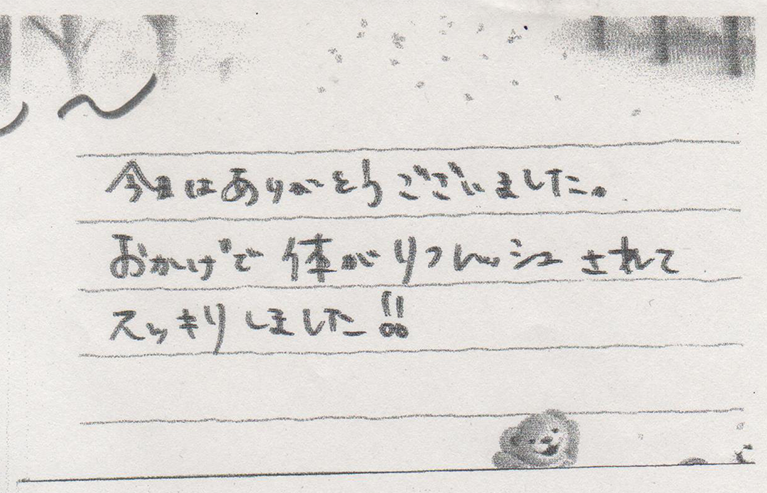 今日はありがとうございました。
おかげで体がリフレッシュされて
スッキリしました!!